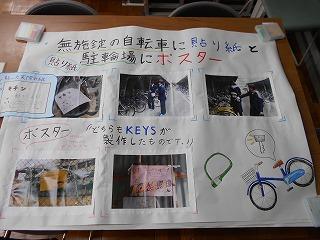 無施錠の自転車に貼り紙と
駐輪場にポスター
貼り紙
ポスター
(どちらもKEYSが
製作したものです。)